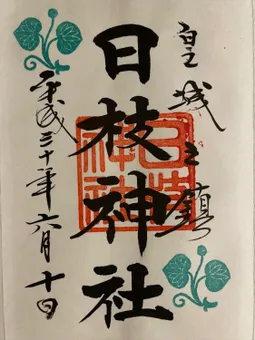 皇城之鎮
日枝神社
日枝神社
平成三十年六月十日